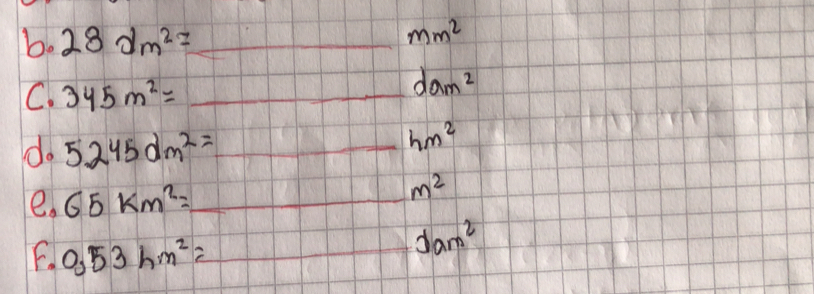 b. 28 dm²= ________ mm²
C. 345 m²= ________ dam²
d. 5245 dm²= ________ hm²
e. 65 Km²= ________ m²
F. 0,53 hm²= ________ dam²